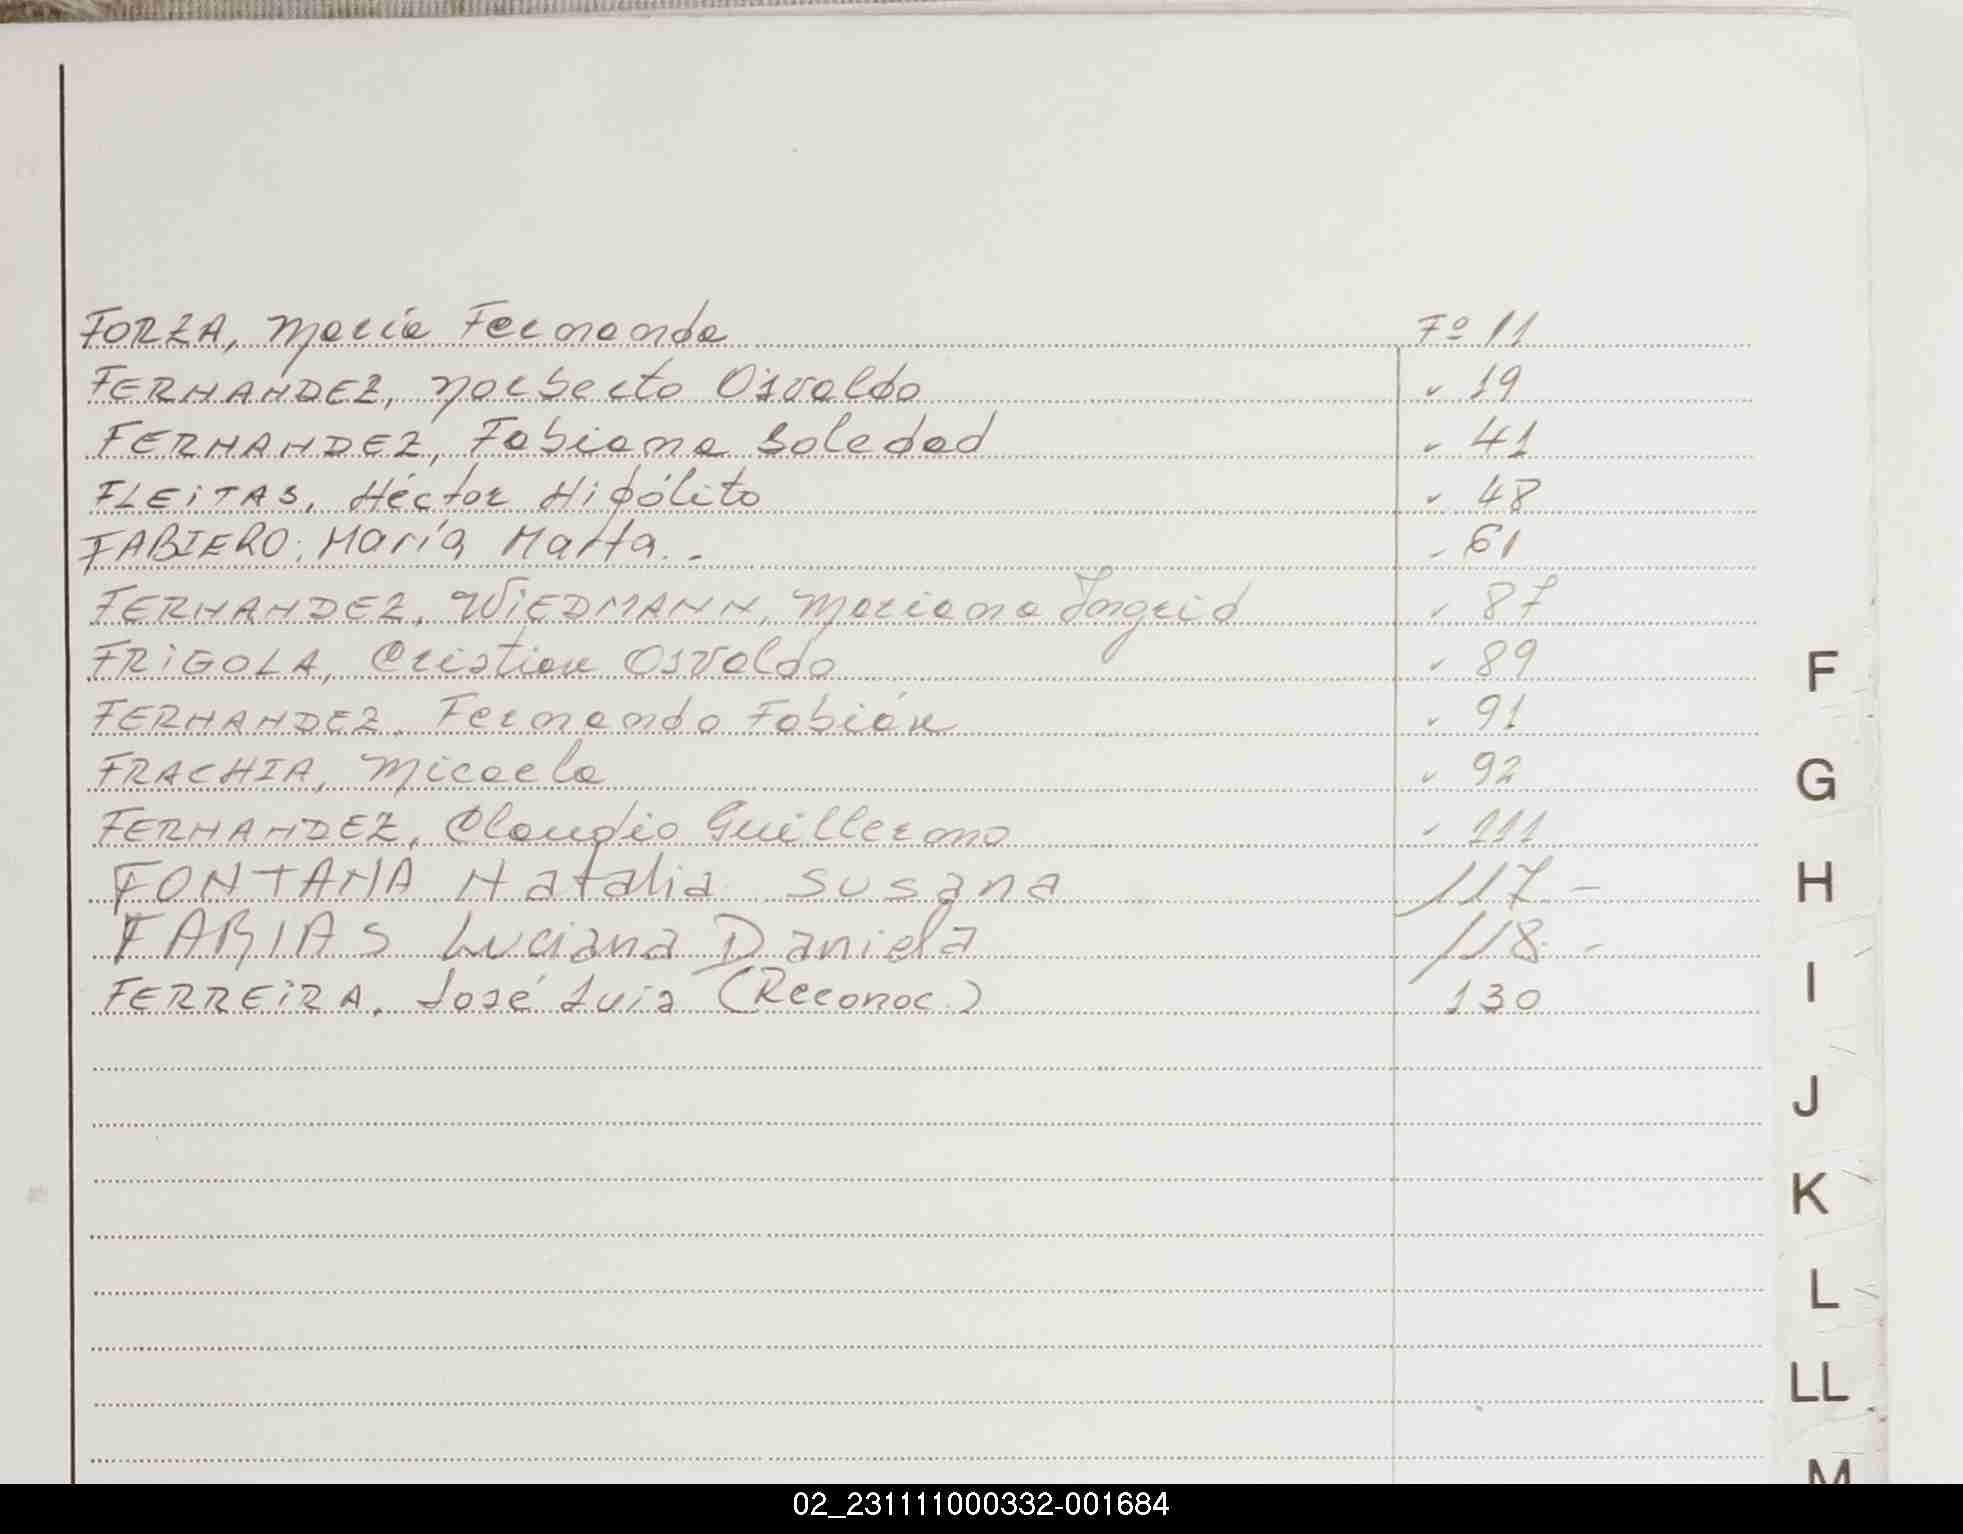 FORZA, María Fernanda Fº 11
FERNANDEZ, Norberto Osvaldo " 19
FERNANDEZ, Fabiana Soledad " 41
FLEiTAS, Héctor Hipólito " 48
FABIERO, María Marta.- " 61
FERNANDEZ, WiEDMANN, Mariana Ingrid " 87
FRiGOLA, Cristian Osvaldo " 89
FERNANDEZ, Fernando Fabián " 91
FRACHIA, Micaela " 92
FERNANDEZ, Claudio Guillermo " 111
FONTANA Natalia Susana 117 -
FARIAS Luciana Daniela 118. -
FERREiRA, José Luis (Reconoc.) 130
F
G
H
I
J
K
L
LL
M
02_231111000332-001684